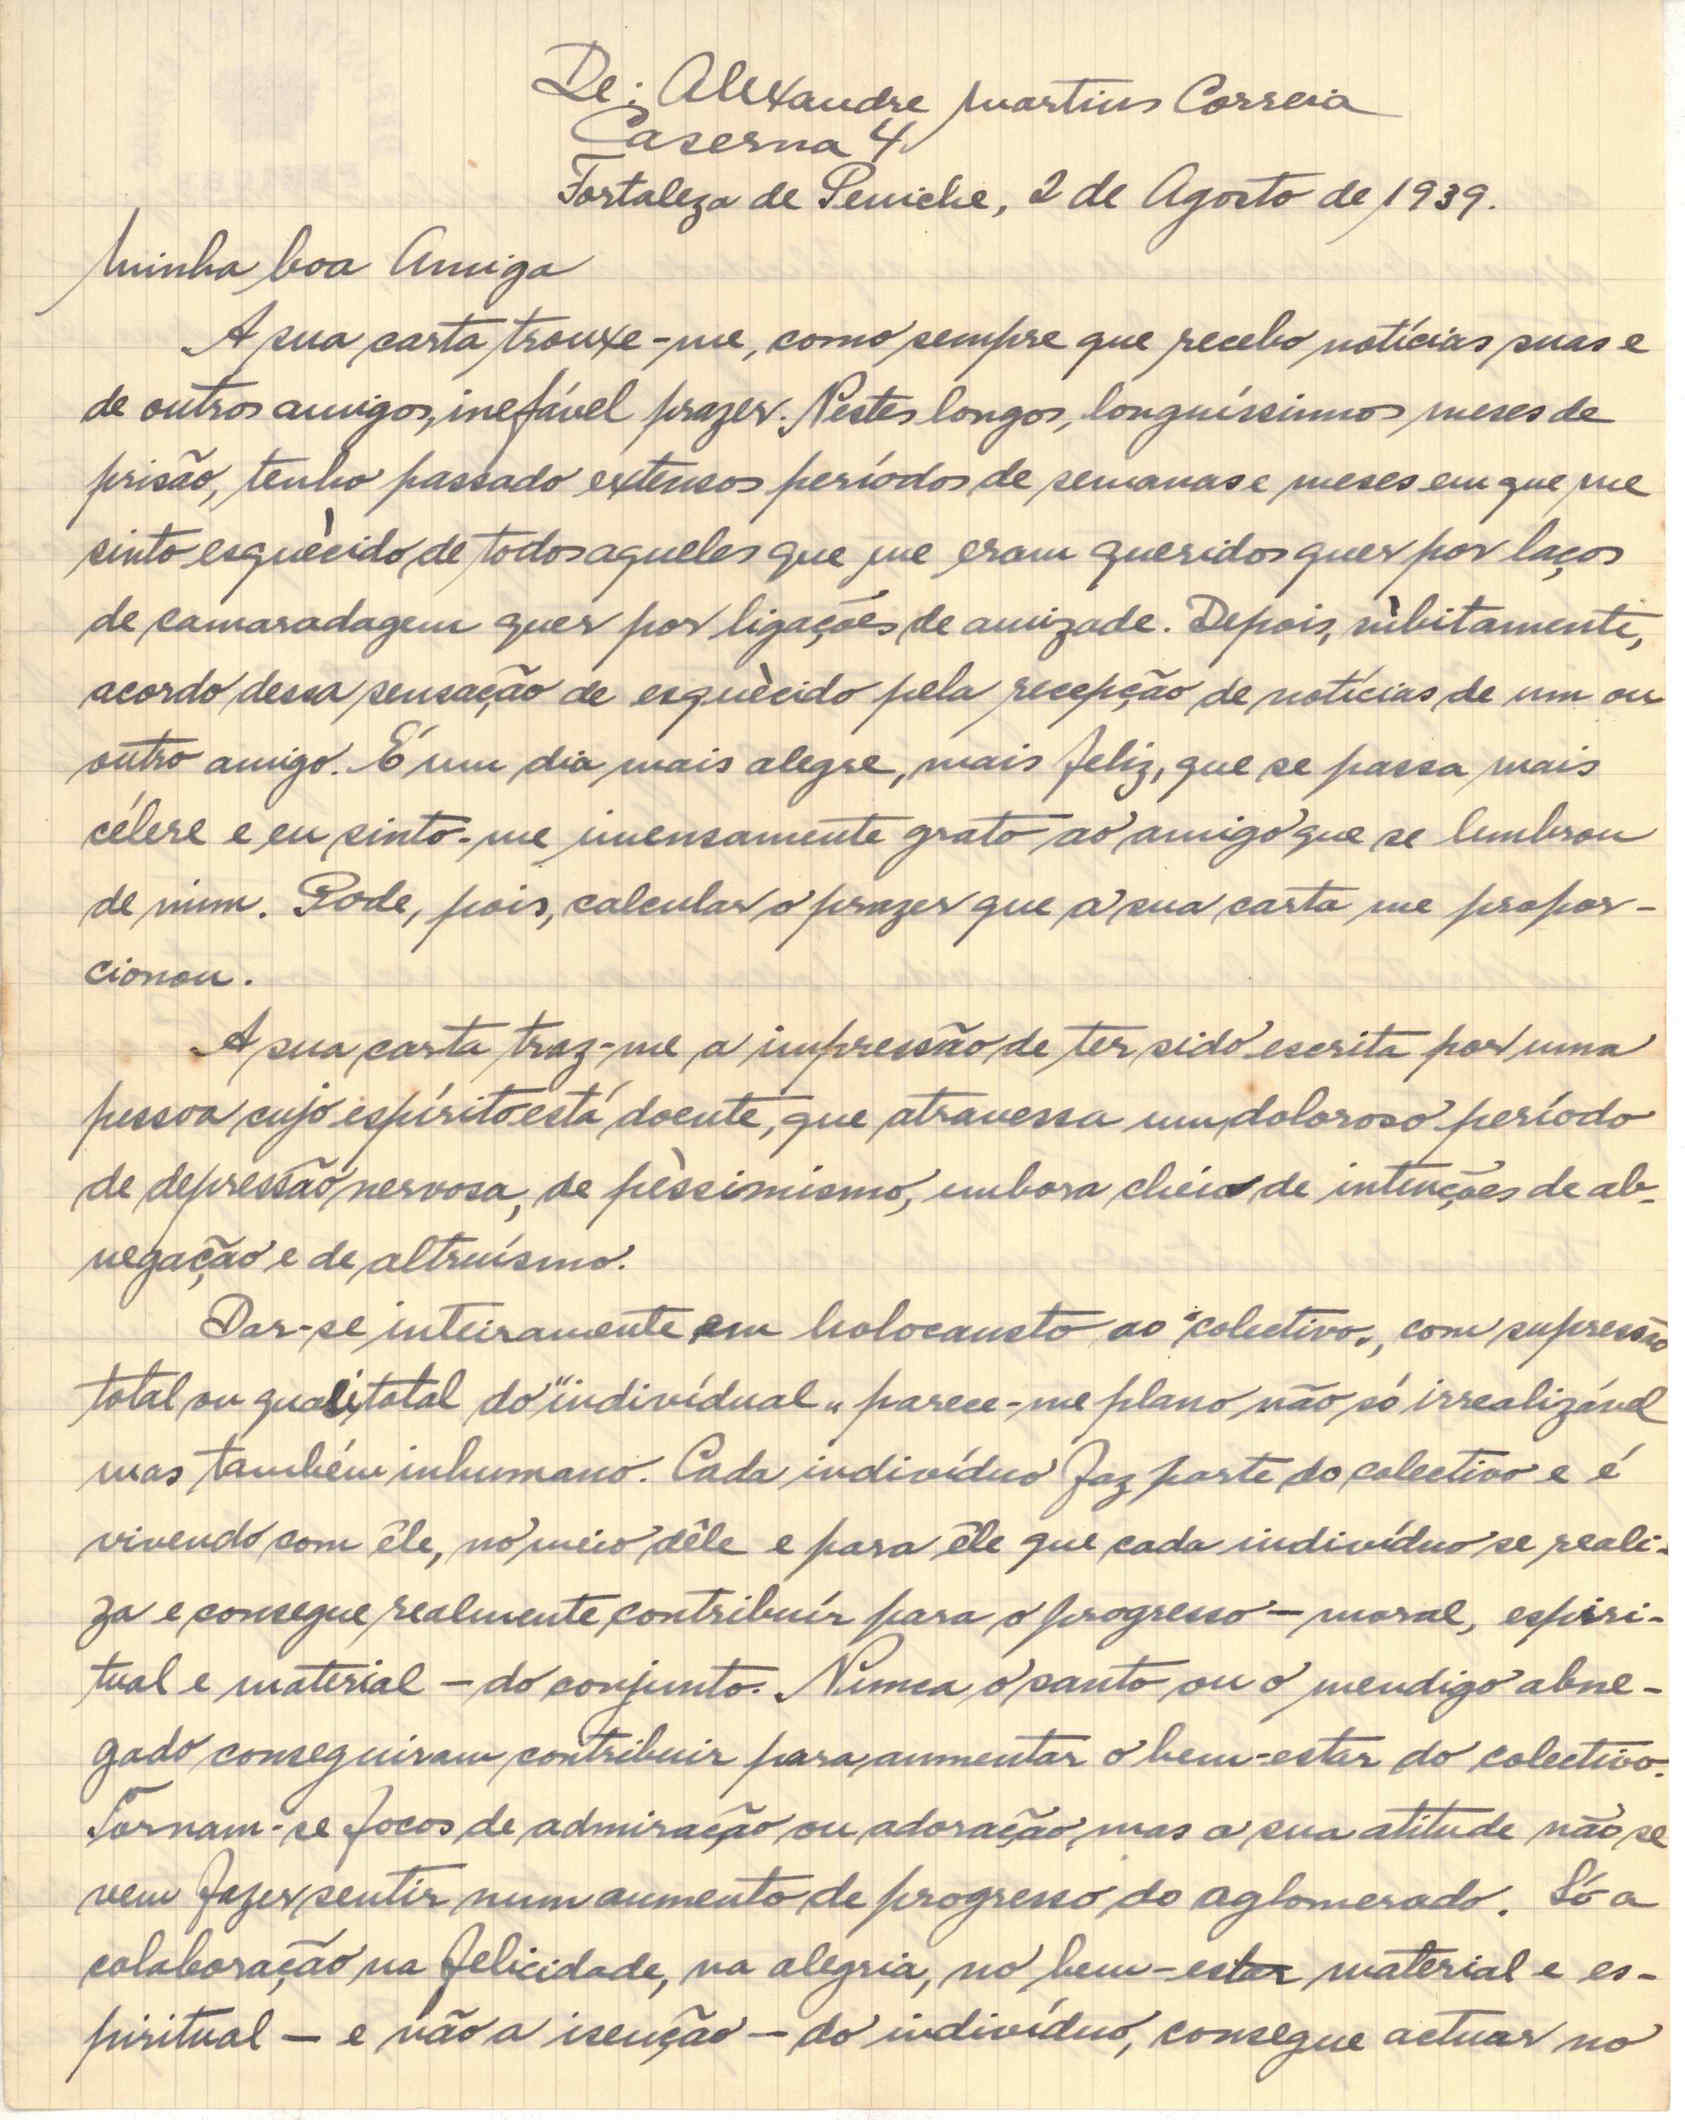 De: Alexandre Martins Correia
Caserna 4
Fortaleza de Peniche, 2 de Agosto de 1939.
Minha boa Amiga
A sua carta trouxe-me, como sempre que recebo notícias suas e
de outros amigos, inefável prazer. Nestes longos, longuíssimos meses de
prisão, tenho passado extensos períodos de semanas e meses em que me
sinto esquècido de todos aqueles que me eram queridos quer por laços
de camaradagem quer por ligações de amizade. Depois, sùbitamente,
acordo dessa sensação de esquècido pela recepção de notícias de um ou
outro amigo. É um dia mais alegre, mais feliz, que se passa mais
célere e eu sinto-me imensamente grato ao amigo que se lembrou
de mim. Pode, pois, calcular o prazer que a sua carta me propor-
cionou.
A sua carta traz-me a impressão de ter sido escrita por uma
pessoa cujo espírito está doente, que atravessa um doloroso período
de depressão nervosa, de pèssimismo, embora cheio de intenções de ab-
negação e de altruísmo.
Dar-se inteiramente em holocausto ao "colectivo", com supressão
total ou quási total do "indivídual" parece-me plano não só irrealizável
mas também inhumano. Cada indivíduo faz parte do colectivo e é
vivendo com êle, no meio dêle e para êle que cada indivíduo se reali-
za e consegue realmente contribuír para o progresso - moral, espiri-
tual e material - do conjunto. Nunca o santo ou o mendigo abne-
gado conseguiram contribuir para aumentar o bem-estar do colectivo.
Tornam-se focos de admiração ou adoração mas a sua atitude não se
vem fazer sentir num aumento de progresso do aglomerado. Só a
colaboração na felicidade, na alegria, no bem-estar material e es-
piritual - e não a isenção - do indivíduo, consegue actuar no